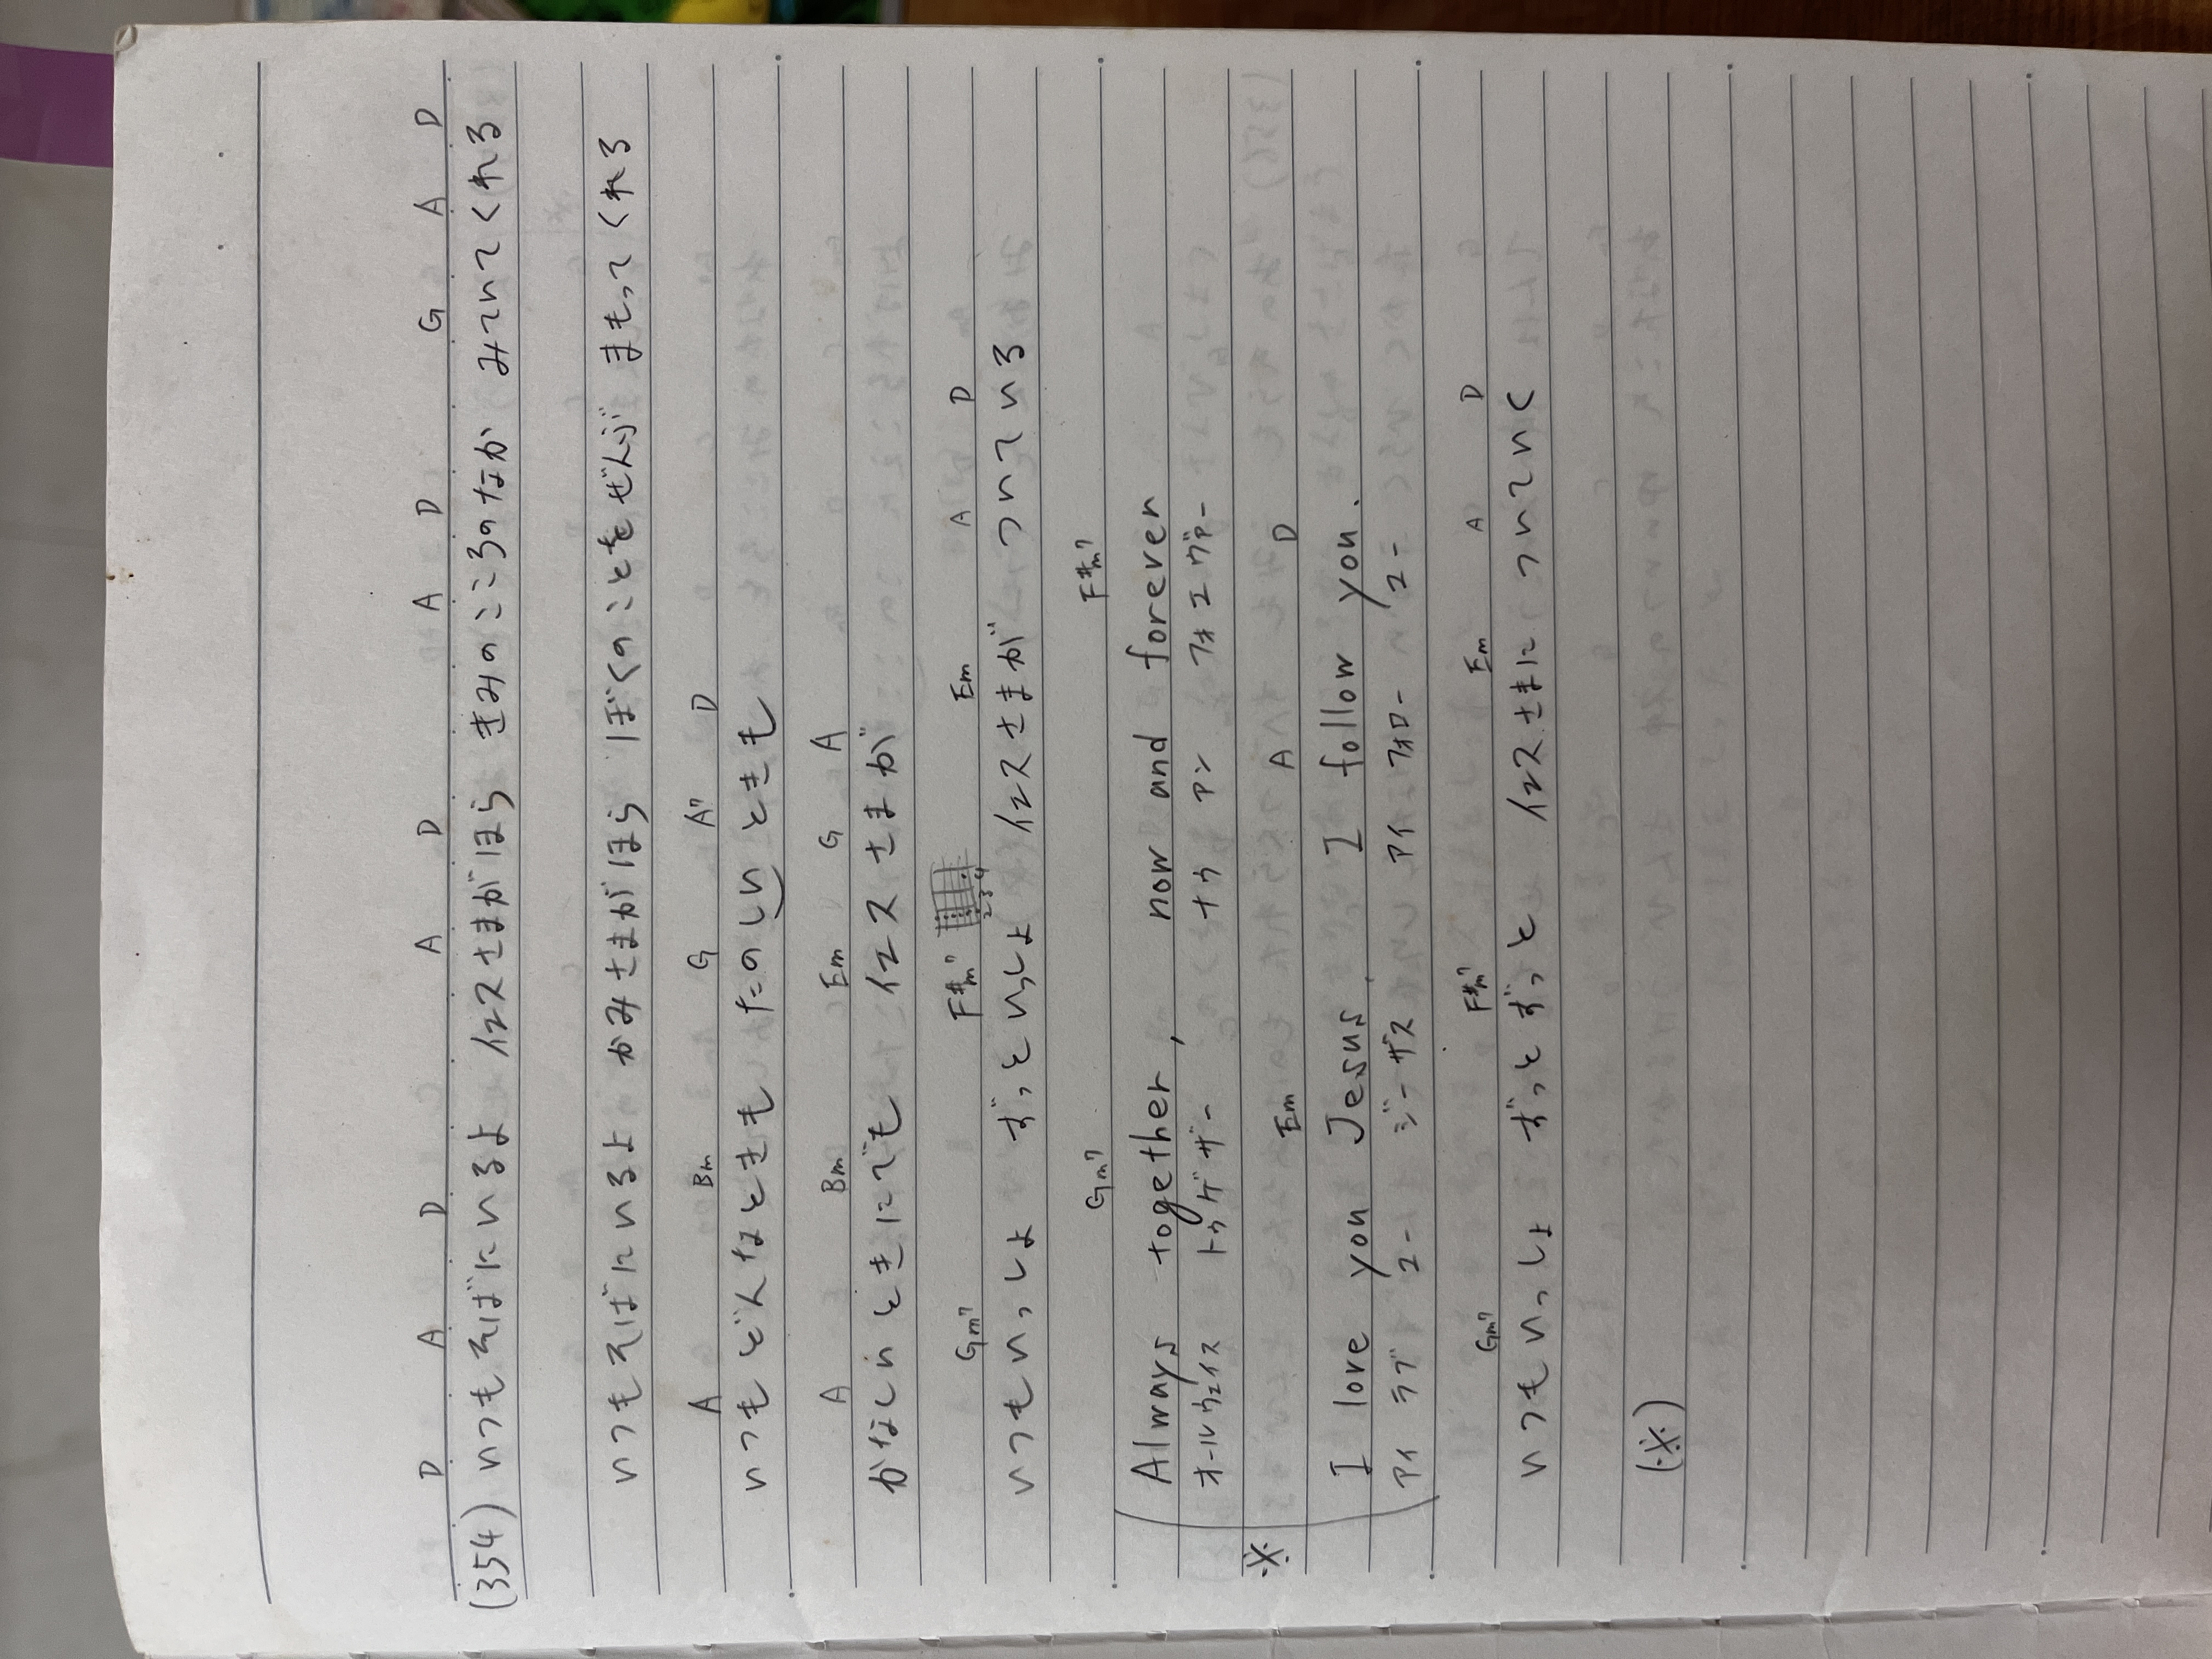 D A D A D A D G A D
(354) いつもそばにいるよ イエスさまがほら きみのこころのなか みていてくれる
いつもそばにいるよ かみさまがほら ぼくのことをぜんぶ まもってくれる
A Bm G A7 D
いつもどんなときも たのしいときも
A Bm Em G A
かなしいときにでも イエスさまが
Gm7 F#m7 Em A D
いつもいっしょ ずっといっしょ イエスさまが ついている
Gm7 F#m7
Always together, now and forever
オールウェイス トゥゲザー ナウ アン フォエヴァー
※ Em A D
I love you Jesus, I follow you.
アイ ラブ ユー ジーザス アイ フォロー ユー
Gm7 F#m7 Em A D
いつもいっしょ ずっとずっと イエスさまに ついていく
(※)